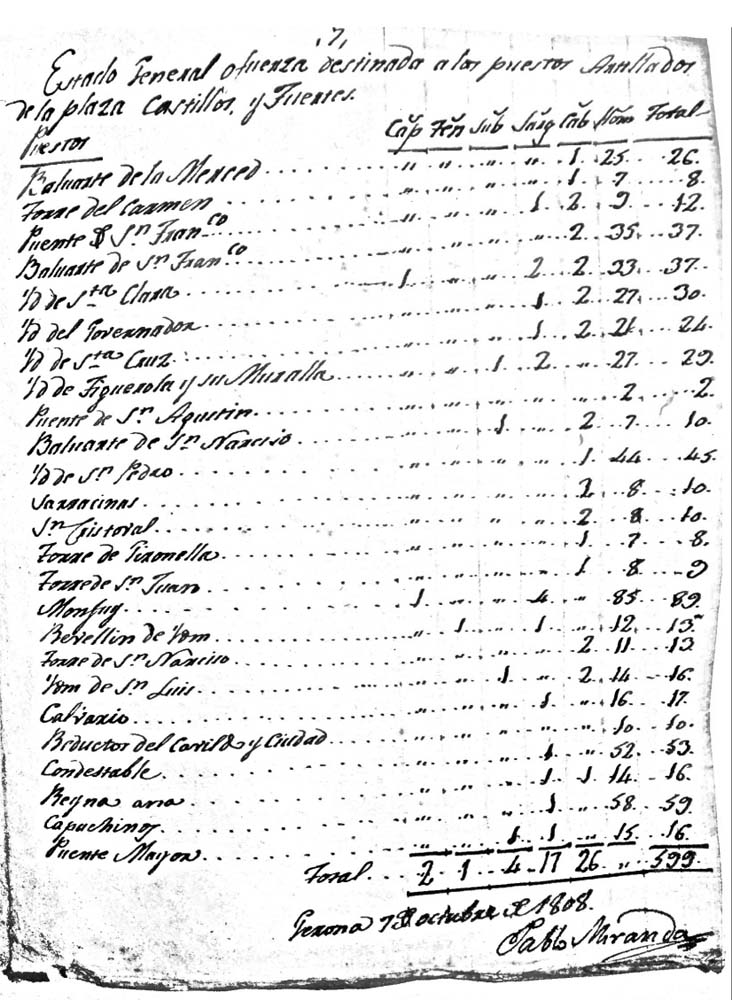 7,
Estado General o fuerza destinada a los puestos Artillados
de la plaza Castillos, y Fuertes.
Puestos Cap̃ Teñ Sub̃ Sarg Cab Hom̃ Total
Baluarte de la Merced " " " " 1 25 26.
Torre del Carmen " " " " 1 7 8.
Puente de Sn Franco " " " 1 2 9 12
Baluarte de Sn Franco " " " " 2 35 37.
Yd de Sta Clara 1 " " 2 2 33 37.
Yd del Governador " " " 1 2 27 30.
Yd de Sta Cruz " " " 1 2 21 24.
Yd de Figuerola y su Muralla " " 1 2 " 27 29.
Puente de Sn Agustin " " " " " 2 2.
Baluarte de Sn Narciso " " 1 " 2 7 10.
Yd de Sn Pedro " " " " 1 44 45.
Sarracinas " " " " 2 8 10.
Sn Cristoval " " " " 2 8 10.
Torre de Gironella " " " " 1 7 8.
Torre de Sn Juan " " " " 1 8 9
Monjuy 1 " " 4 " 85 89.
Revellin de Ydm " 1 " 1 " 12 13.
Torre de Sn Narciso " " " " 2 11 13
Ydm de Sn Luis " " 1 " 2 14 16.
Calvario " " " 1 " 16 17.
Reductos del Cavildo y Ciudad " " " " " 10 10.
Condestable " " " 1 " 52 53.
Reyna ana " " " 1 1 14 16.
Capuchinos " " " 1 " 58 59.
Puente Mayor " " 1 1 " 15 16.
Total 2 1 4 17 26 " 599.
Gerona 7 de octubre de 1808.
Pablo Miranda